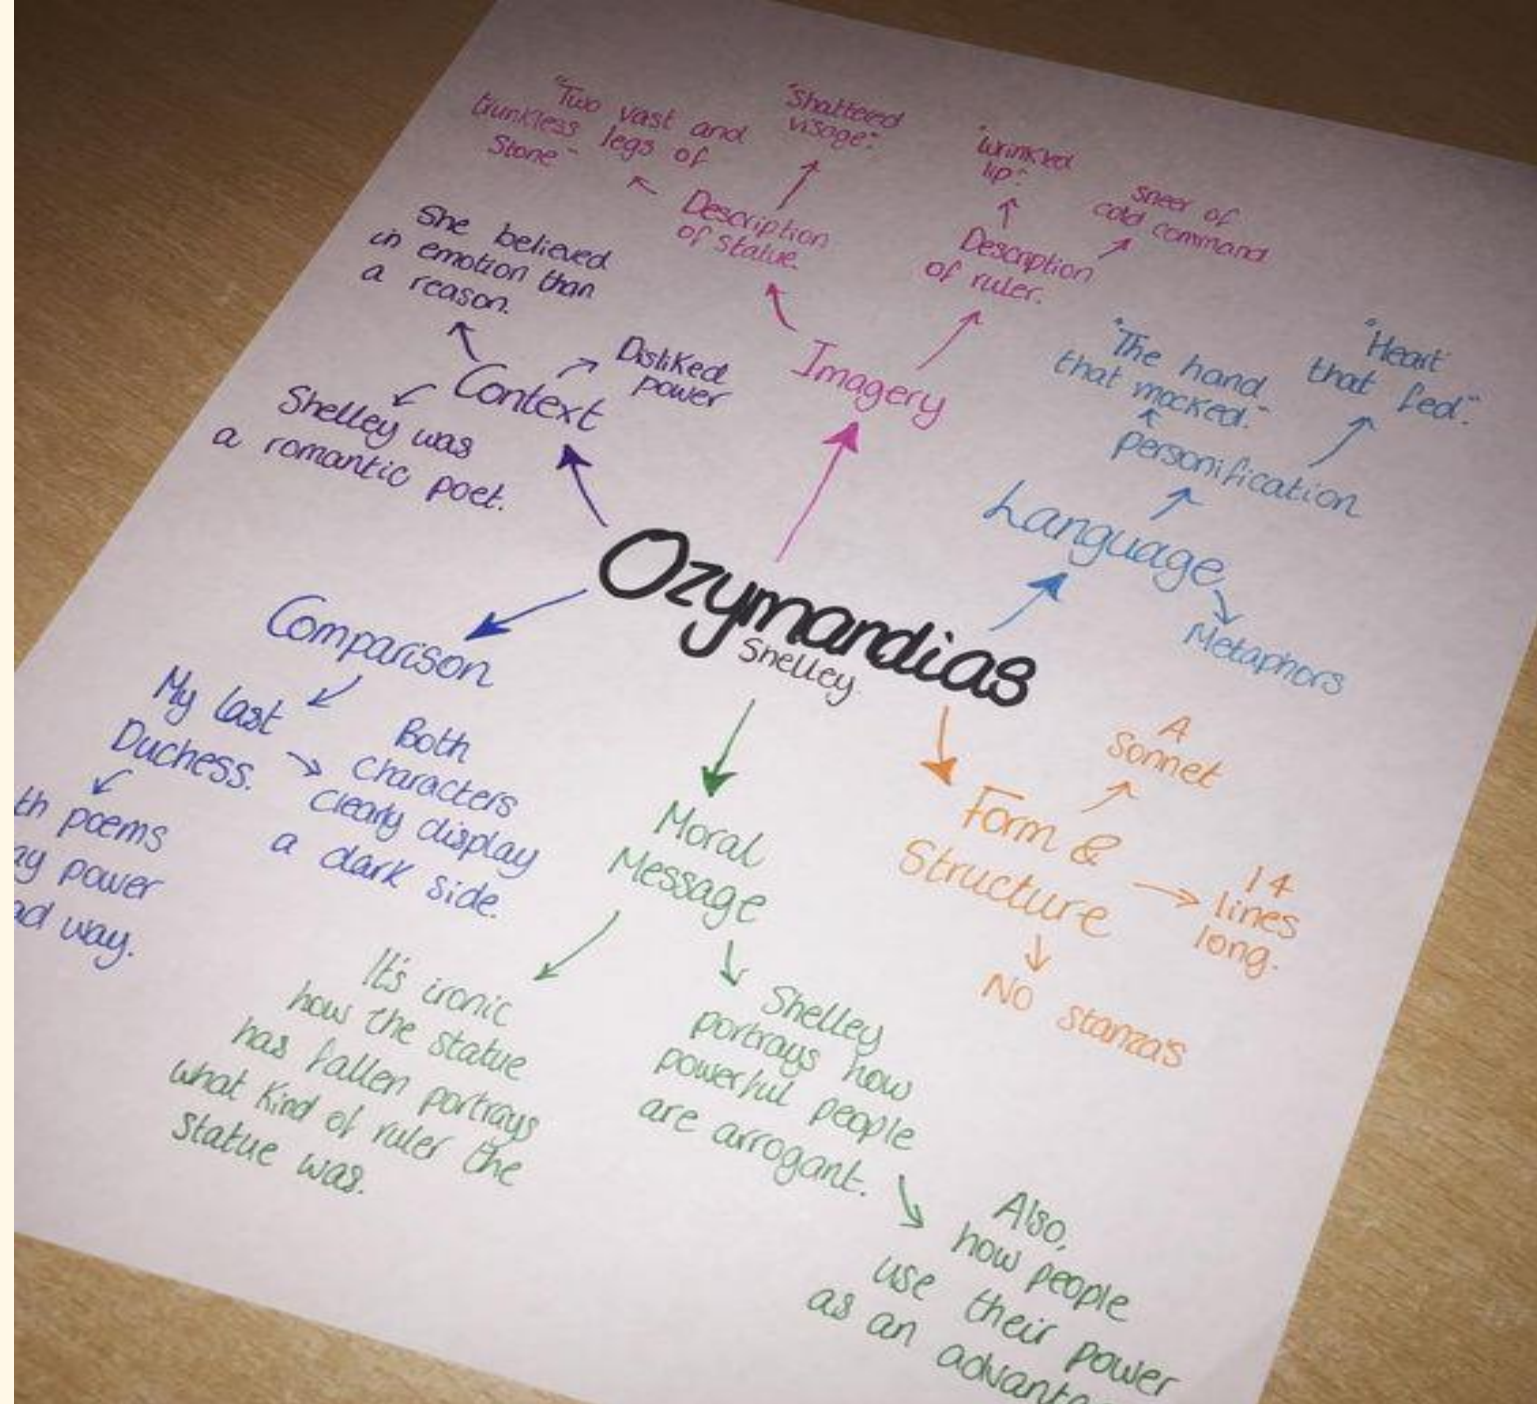 Ozymandias
Shelley
Context
She believed
in emotion than
a reason.
Disliked
power
Shelley was
a romantic poet.
Imagery
Description
of statue.
"Two vast and
trunkless legs of
Stone"
"Shattered
visage".
Description
of ruler.
"wrinkled
lip".
sneer of
cold command
Language
personification
"The hand
that mocked."
"Heart
that fed".
Metaphors
Form &
Structure
A
sonnet
14
lines
long.
No stanza's
Moral
Message
It's ironic
how the statue
has fallen portrays
what kind of ruler the
statue was.
Shelley
portrays how
powerful people
are arrogant.
Also,
how people
use their power
as an
Comparison
My last
Duchess.
Both
characters
clearly display
a dark side.
poems
power
way.